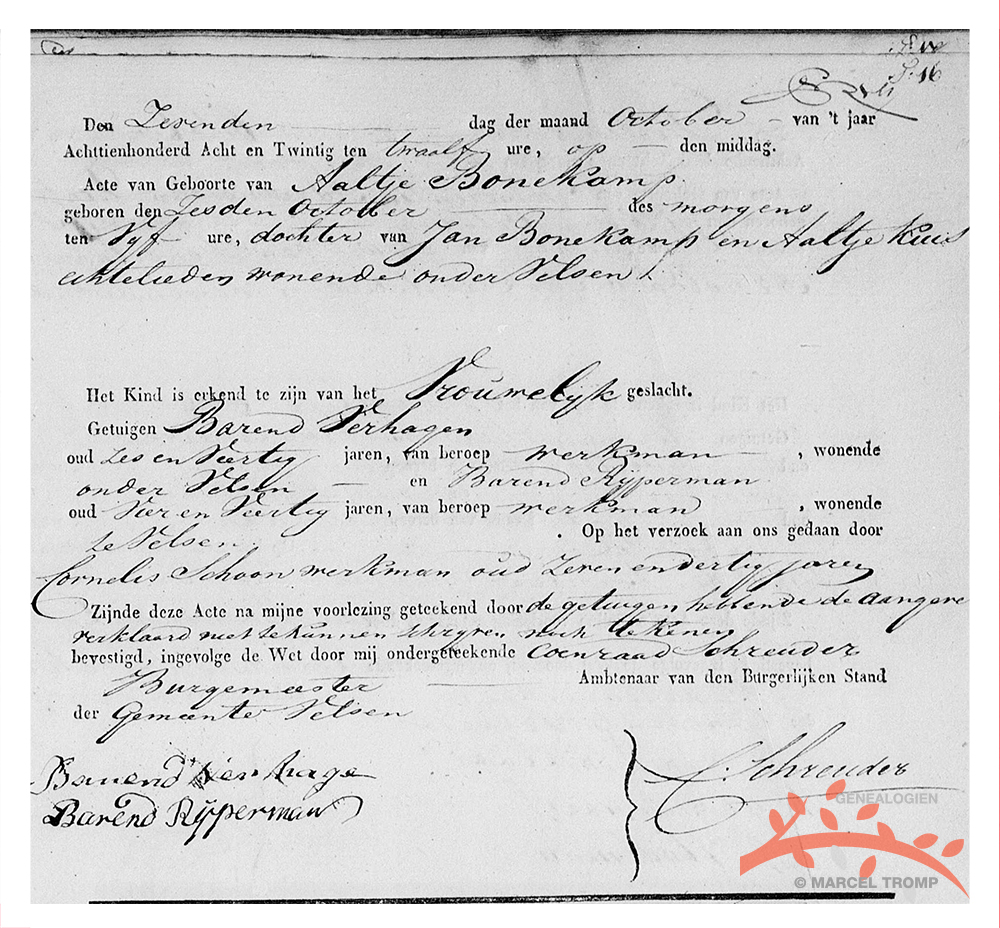 S. 16
Den Zevenden dag der maand October van 't jaar
Achttienhonderd Acht en Twintig ten twaalf ure, op den middag.
Acte van Geboorte van Aaltje Bonekamp
geboren den Zesden October des morgens
ten Vyf ure, dochter van Jan Bonekamp en Aaltje Kuis
echtelieden wonende onder Velsen
Het Kind is erkend te zijn van het Vrouwelyk geslacht.
Getuigen Barend Verhagen
oud Zes en Veertig jaren, van beroep werkman, wonende
onder Velsen en Barend Rijperman
oud Vier en Veertig jaren, van beroep werkman, wonende
te Velsen. Op het verzoek aan ons gedaan door
Cornelis Schoon werkman oud Zeven en dertig jaren
Zijnde deze Acte na mijne voorlezing geteekend door de getuigen hebbende de aangever
verklaard niet te kunnen schryven noch tekenen
bevestigd, ingevolge de Wet door mij ondergeteekende Coenraad Schreuder
Burgemeester Ambtenaar van den Burgerlijken Stand
der Gemeente Velsen
Barend Verhage
Barend Rijperman
C. Schreuder
GENEALOGIEN
© MARCEL TROMP